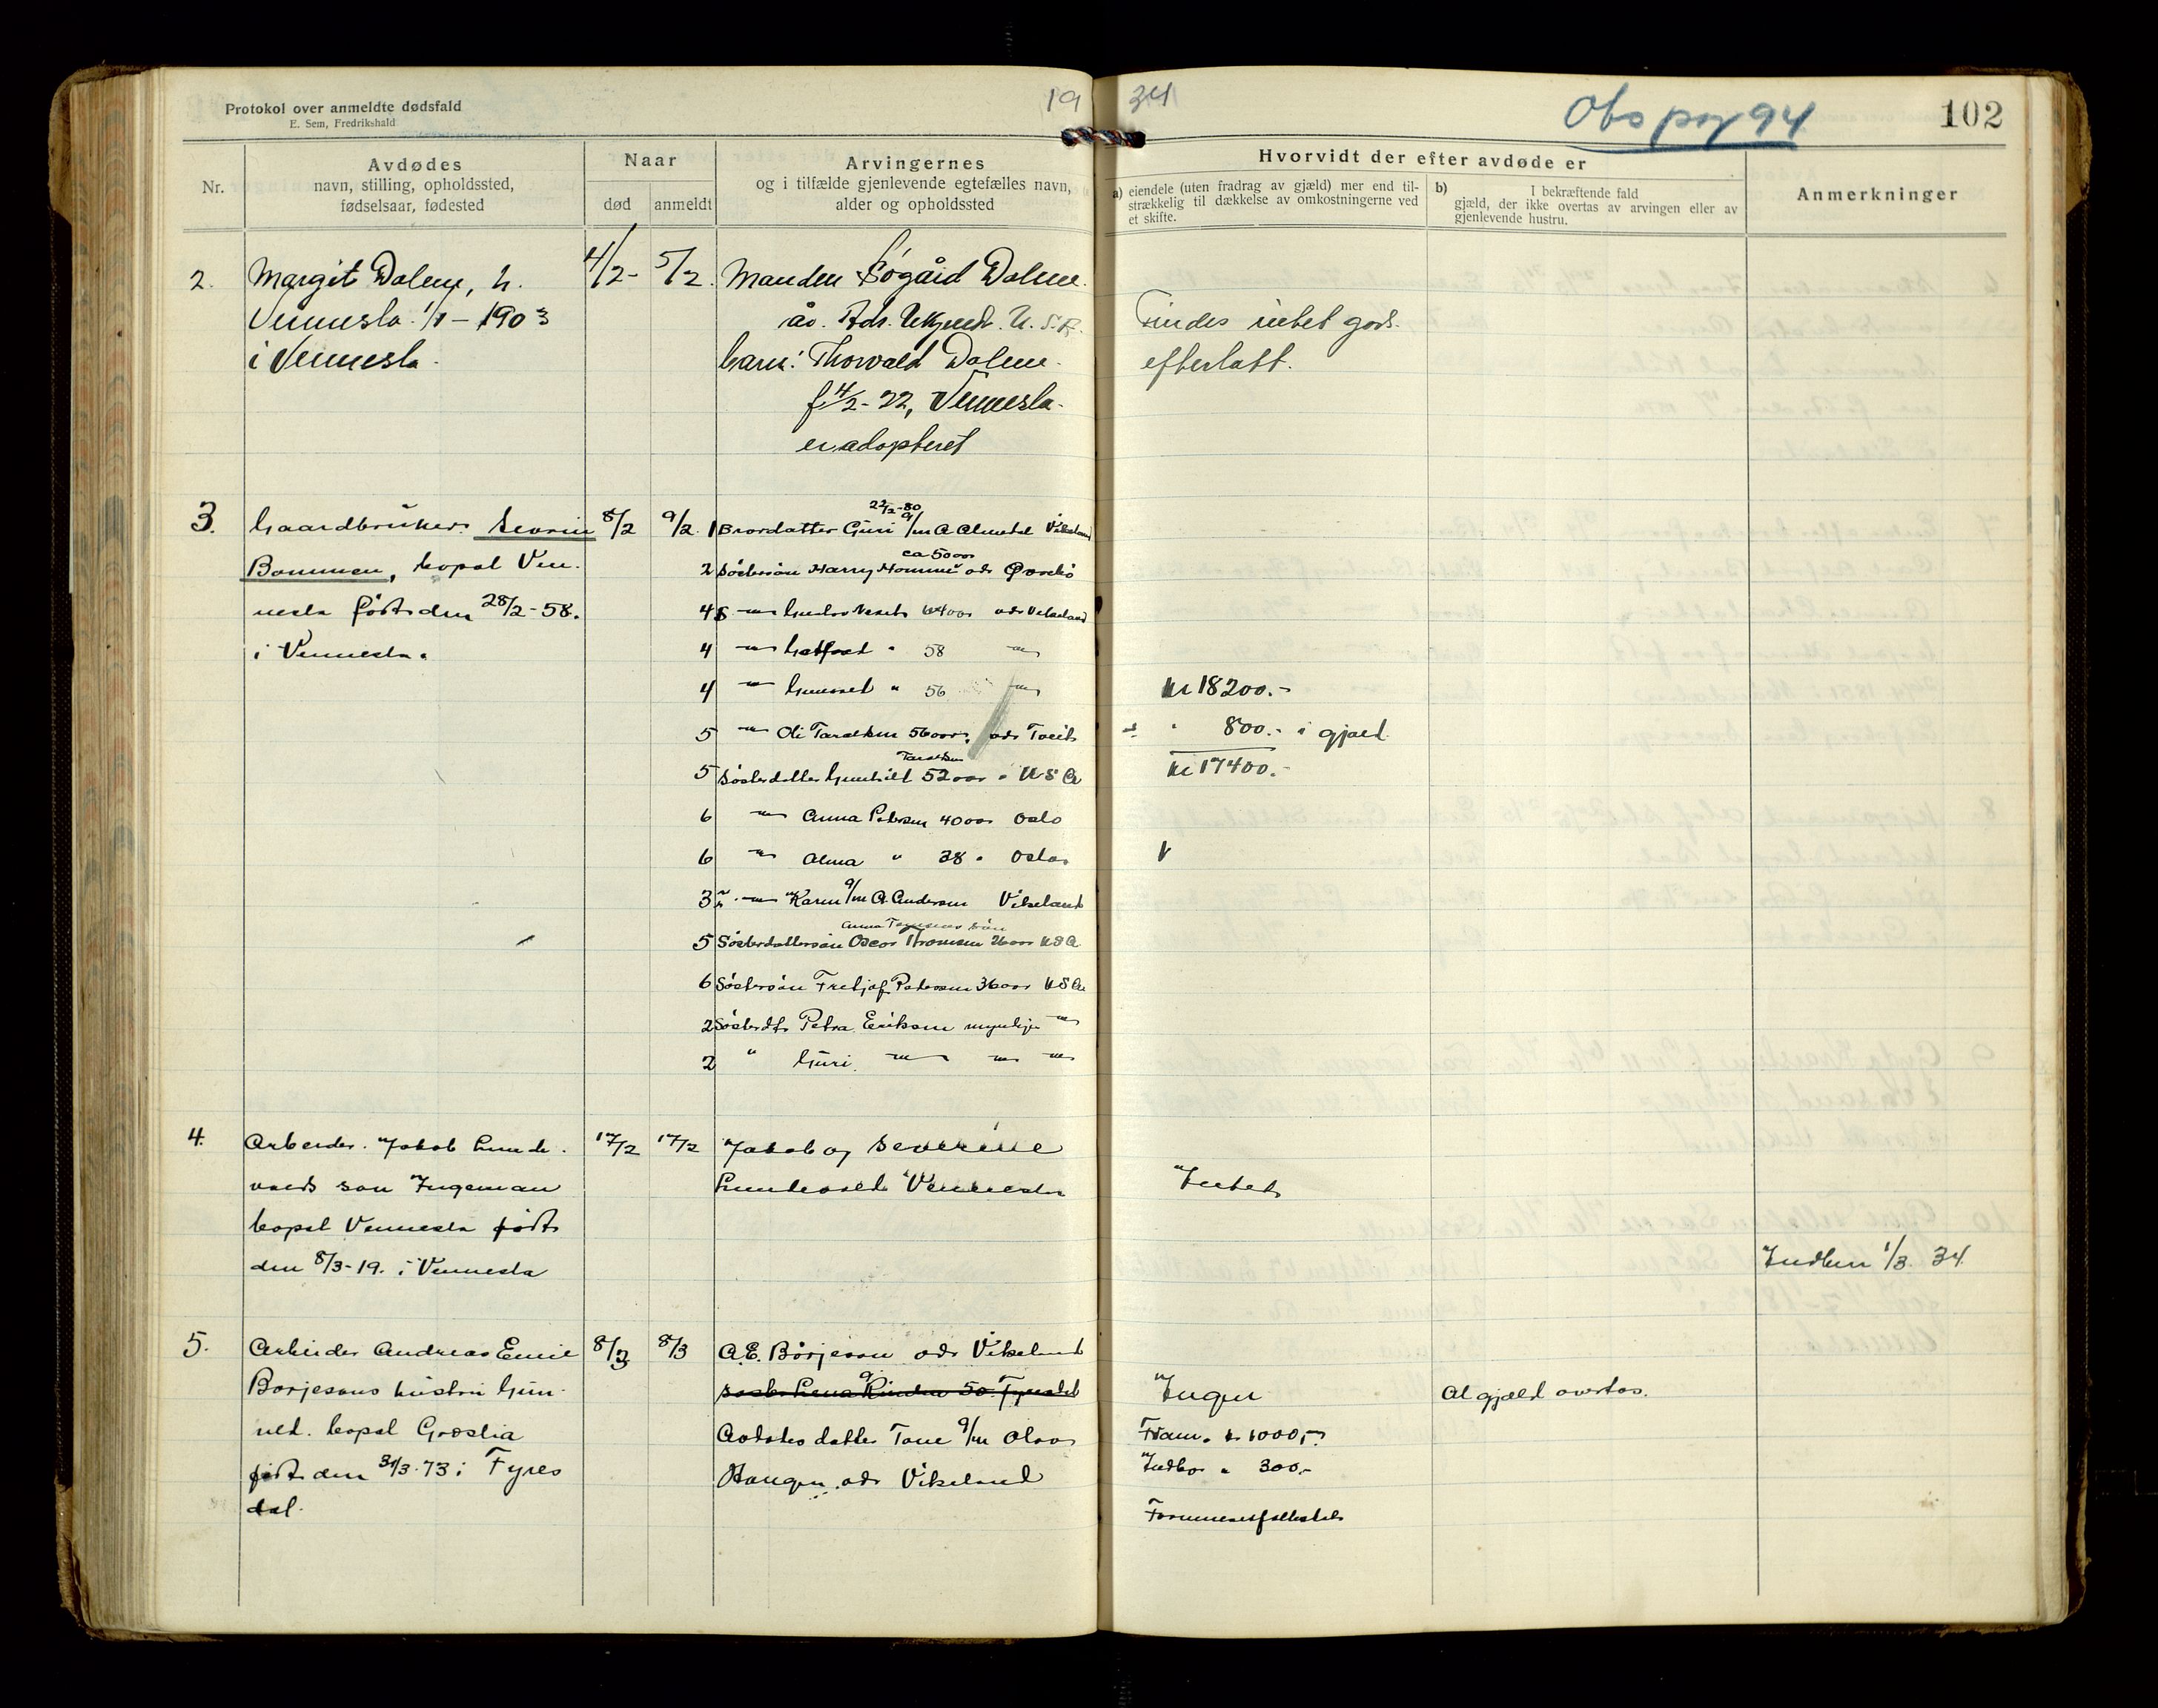 Protokol over anmeldte dødsfald
E. Sem, Fredrikshald
19 34
Obs pag 94
102
Nr.
Avdødes
navn, stilling, opholdssted,
fødselsaar, fødested
Naar
død
anmeldt
Arvingernes
og i tilfælde gjenlevende egtefælles navn,
alder og opholdssted
Hvorvidt der efter avdøde er
a) eiendele (uten fradrag av gjæld) mer end til-
strækkelig til dækkelse av omkostningerne ved
et skifte.
b) I bekræftende fald
gjæld, der ikke overtas av arvingen eller av
gjenlevende hustru.
Anmerkninger
2.
Margit Dalene, h.
Vennesla 1/1 - 1903
i Vennesla.
4/2-
5/2.
Manden Sogård Dalene.
Adr. Ukjendt. U. S. A.
barn: Thorvald Dalene.
f 4/2-22, Vennesla.
er adopteret
Findes intet gods
efterlatt.
3.
Gaardbruker Sevrin
Bommen, bopæl Ven-
nesla født den 28/2-58.
i Vennesla.
8/2
9/2.
1 Brordatter Guri g/m A Almedal Vikeland
ca 50 aar
2 Söstersön Harry Homme adr Øvrebö
4 64 aar adr Vikeland
4 58
4 Gunvald " 56
5 Oli Taraldsen 56 aar, adr Tveit
Taraldsen
5 Sösterdatter Gunhild 52 aar " U S A
6 Anna Petersen 40 aar Oslo
6 Alma " 38 " Oslo
3 Karen g/m A. Andersen Vikeland
5 Sösterdattersön Oscar Thomsen 26 aar U S A
6 Söstersön Fretjof Petersen 36 aar U S A
2 Sösterdtr Petra Eriksen myndige
2 " Guri
kr 18200.-
÷ " 800.- i gjæld.
kr 17400.-
4.
Arbeider Jakob Lunde-
valds søn Ingeman
bopæl Vennesla født
den 8/3-19. i Vennesla
17/2
17/2
Jakob og Severine
Lundevold Vennesla
Intet
Indber 1/3. 34.
5.
Arbeider Andreas Emil
Borjesons hustru Gun-
ild. bopæl Graslia
født den 31/3-73 i Fyres
dal.
8/3
8/3
A.E. Börjeson adr Vikeland
50 Fyresdal
datter Tone g/m Olav
Haugen adr Vikeland
Ingen
kr 1000,-
Indbo " 300.-
Formuesfællesskab
Al gjæld overtas.